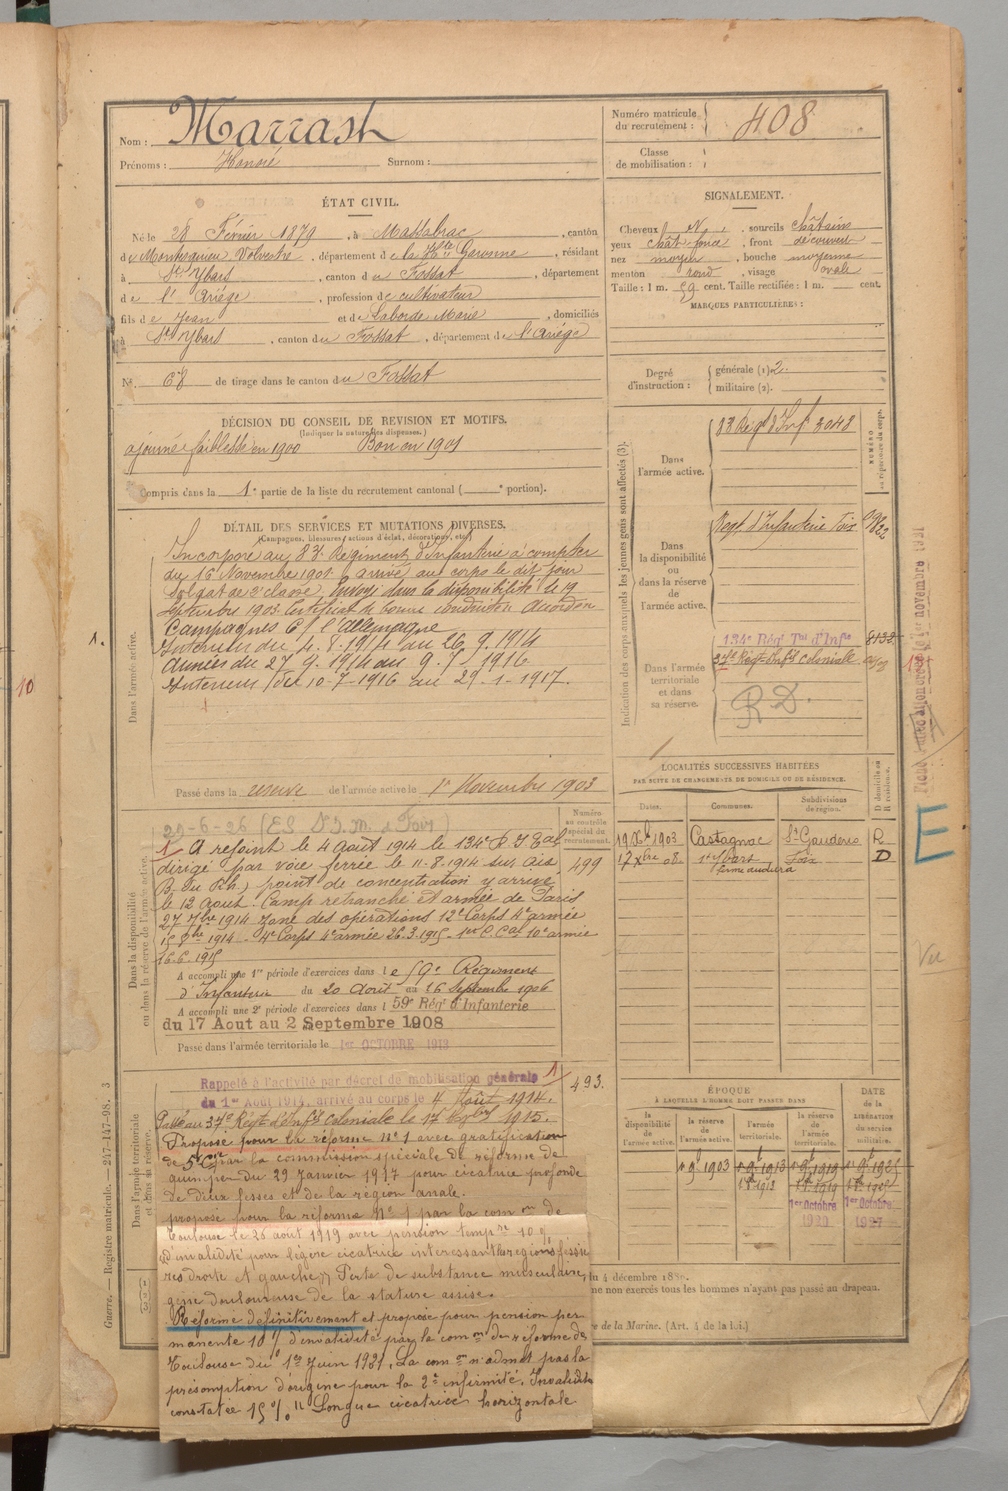 Nom : Marrast
Prénoms : Honoré Surnom :
Numéro matricule du recrutement : 408
Classe de mobilisation :
ÉTAT CIVIL.
Né le 28 Février 1879, à Massabrac, canton
de Montesquieu Volvestre, département de la Hte Garonne, résidant
à St Ybars, canton du Fossat, département
de l'Ariège, profession de cultivateur
fils de Jean et de Laborde Marie, domiciliés
à St Ybars, canton du Fossat, département de l'Ariège
N° 68 de tirage dans le canton du Fossat
SIGNALEMENT.
Cheveux, sourcils châtains
yeux chât. foncé, front découvert
nez moyen, bouche moyenne
menton rond, visage ovale
Taille : 1 m. 59 cent. Taille rectifiée : 1 m. cent.
MARQUES PARTICULIÈRES :
Degré d'instruction : générale (1) 2.
militaire (2).
DÉCISION DU CONSEIL DE REVISION ET MOTIFS.
(Indiquer la nature des dispenses.)
ajourné faiblesse en 1900 Bon en 1901
Compris dans la 1e partie de la liste du recrutement cantonal ( e portion).
DÉTAIL DES SERVICES ET MUTATIONS DIVERSES.
(Campagnes, blessures, actions d'éclat, décorations, etc.)
Dans l'armée active.
Incorporé au 83e Régiment d'Infanterie à compter
du 16 Novembre 1901 arrivé au corps le dit jour
Soldat de 2e classe, Envoyé dans la disponibilité le 19
Septembre 1903. Certificat de bonne conduite Accordé
Campagnes C/ l'Allemagne
Intérieur du 4.8.1914 au 26.9.1914
Armées du 27.9.1914 au 9.7.1916
Intérieur du 10-7-1916 au 29.1.1917.
Passé dans la réserve de l'armée active le 1er Novembre 1903
Indication des corps auxquels les jeunes gens sont affectés (3).
NUMÉRO au répertoire du corps.
Dans l'armée active.
83 Régt d'Inf 3048
Dans la disponibilité ou dans la réserve de l'armée active.
Régt d'Infanterie Foix
Dans l'armée territoriale et dans sa réserve.
134e Régt Tal d'Infie 8133
37e Régt Infie Coloniale
R.D.
LOCALITÉS SUCCESSIVES HABITÉES
PAR SUITE DE CHANGEMENTS DE DOMICILE OU DE RÉSIDENCE.
Dates. Communes. Subdivisions de région. D domicile ou R résidence.
1903 Castagnac St Gaudens R
17 Xbre 08 St Ybars Foix D
Dans la disponibilité ou dans la réserve de l'armée active.
Numéro au contrôle spécial du recrutement.
499
29-6-26
A rejoint le 4 Août 1914 le 134e R. I. Tal
dirigé par voie ferrée le 11-8-1914 sur Aix
(B. du Rh.) point de concentration y arrivé
le 12 août. Camp retranché et armée de Paris
27 7bre 1914 Zone des opérations 12e Corps 4e armée
1914 4e Corps 4e armée 26.3.1915 - 1er C. Cal 10e armée
16.6.1915
A accompli une 1re période d'exercices dans le 59e Régiment
d'Infanterie du 20 Août au 16 Septembre 1906
A accompli une 2e période d'exercices dans l 59e Régt d'Infanterie
du 17 Aout au 2 Septembre 1908
Passé dans l'armée territoriale le 1er OCTOBRE 1913
Dans l'armée territoriale et dans sa réserve.
Rappelé à l'activité par décret de mobilisation générale
du 1er Août 1914, arrivé au corps le 4 Août 1914.
493.
Passé au 37e Régt d'Infie Coloniale le 1915.
Proposé pour la réforme N° 1 avec gratification
de 5e Cie par la commission spéciale de réforme de
Quimper du 29 Janvier 1917 pour cicatrice profonde
de deux fesses et de la région anale.
proposé pour la réforme N° 1 par la comon de
Toulouse le 28 août 1919 avec pension tempre 10 %
d'invalidité pour légère cicatrice intéressant les régions fessières
droite et gauche, Perte de substance musculaire,
gêne douloureuse de la stature assise.
Réformé définitivement et proposé pour pension per
manente 10 % d'invalidité par la comon de réforme de
Toulouse du 1er Juin 1921. La comon n'admet pas la
présomption d'origine pour la 2e infirmité. Invalidité
constatée 15 % " Longue cicatrice horizontale
ÉPOQUE
À LAQUELLE L'HOMME DOIT PASSER DANS
la disponibilité de l'armée active.
la réserve de l'armée active.
l'armée territoriale.
la réserve de l'armée territoriale.
DATE de la LIBÉRATION du service militaire.
1er Octobre 1920
1er Octobre 1927
du 4 décembre 188
ne non exercés tous les hommes n'ayant pas passé au drapeau.
re de la Marine. (Art. 4 de la loi.)
Guerre. — Registre matricule. — 217-147-98. 3
E
Vu
10
1.